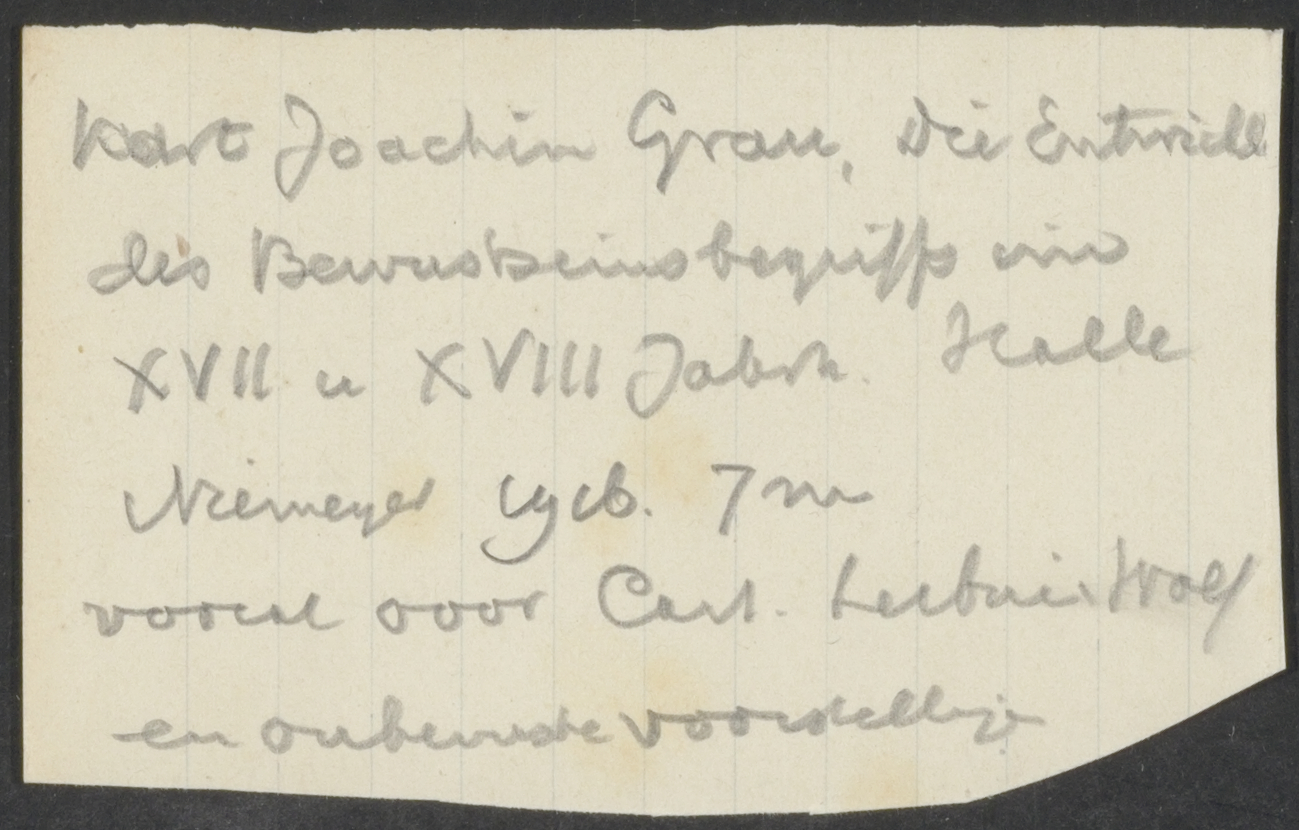 Kurt Joachim Grau, Die Entwickl
des Bewustseinsbegriffs im
XVII u XVIII Jahrh. Halle
Niemeyer 1916. 7 m
vooral over Cart. Leibniz Wolf
en onbewuste voorstellingn